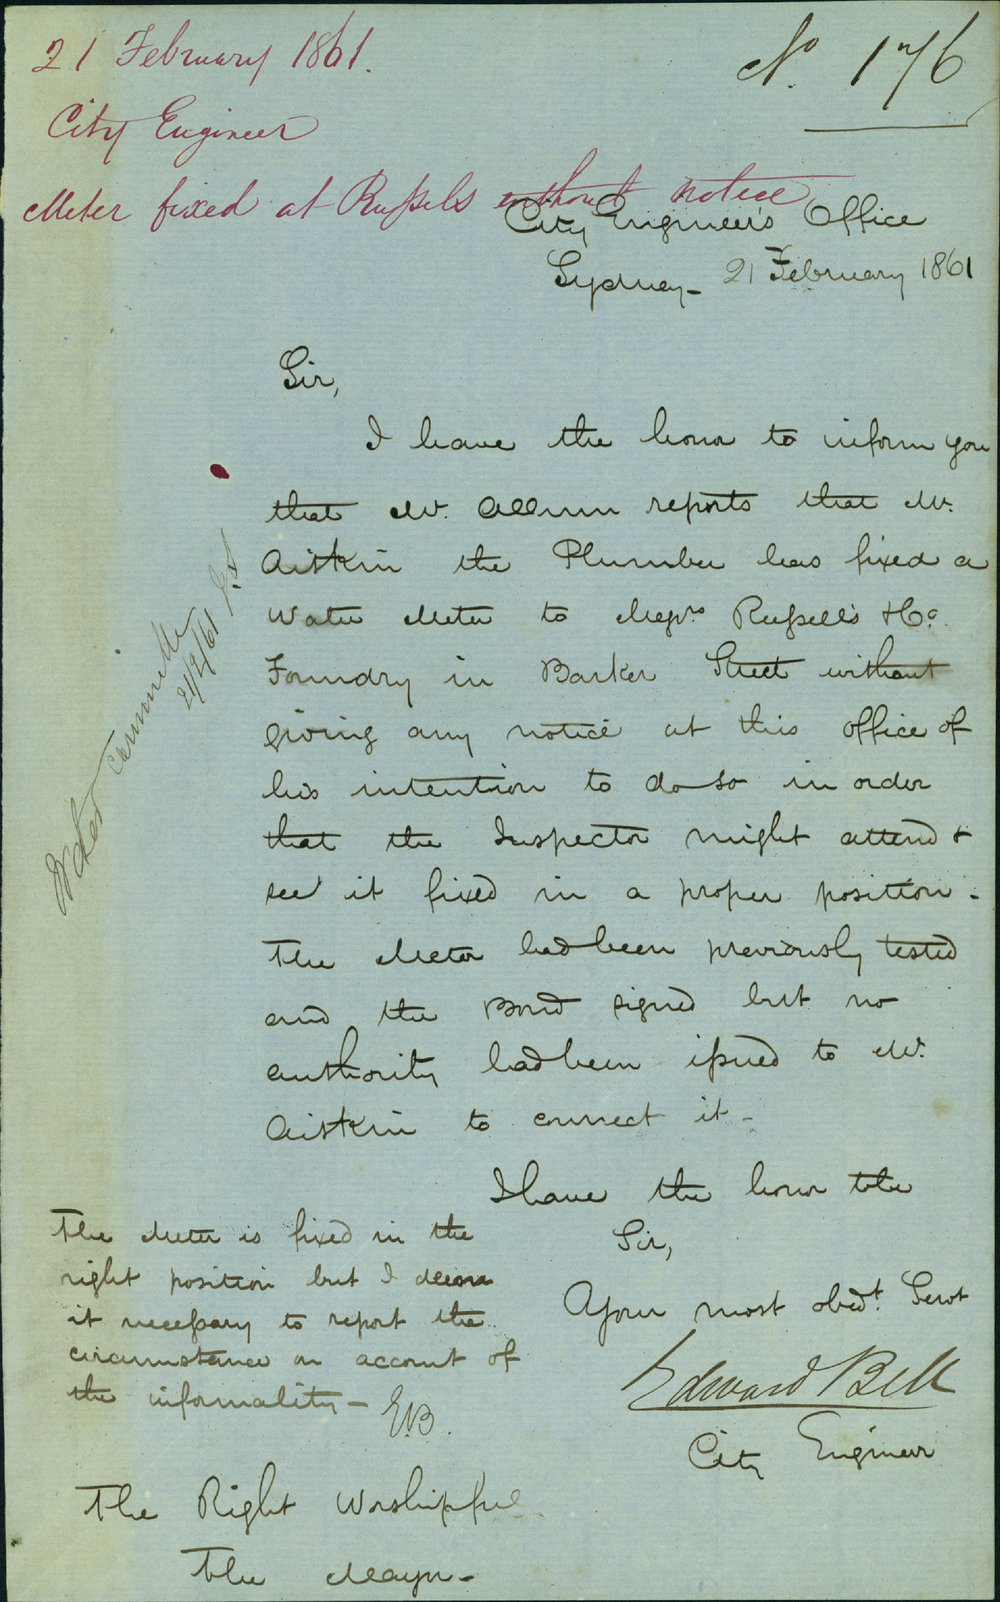 21 February 1861.
No. 176
City Engineer
Meter fixed at Russels without notice
City Engineer's Office
Sydney - 21 February 1861
Sir,
I have the honor to inform you
that Mr. Allum reports that Mr.
Aitkin the Plumber has fixed a
Water Meter to Messrs Russell's & Co.
Foundry in Barker Street without
giving any notice at this office of
his intention to do so in order
that the Inspector might attend &
see it fixed in a proper position -
The Meter had been previously tested
and the Bond signed but no
authority had been issued to Mr.
Aitkin to connect it -
I have the honor to be
Sir,
Your most obedt. Servt
Edward Bell
City Engineer
The Meter is fixed in the
right position but I deem
it necessary to report the
circumstance on account of
the informality - E.B.
The Right Worshipful
The Mayor -
Water Committee
21/2/61